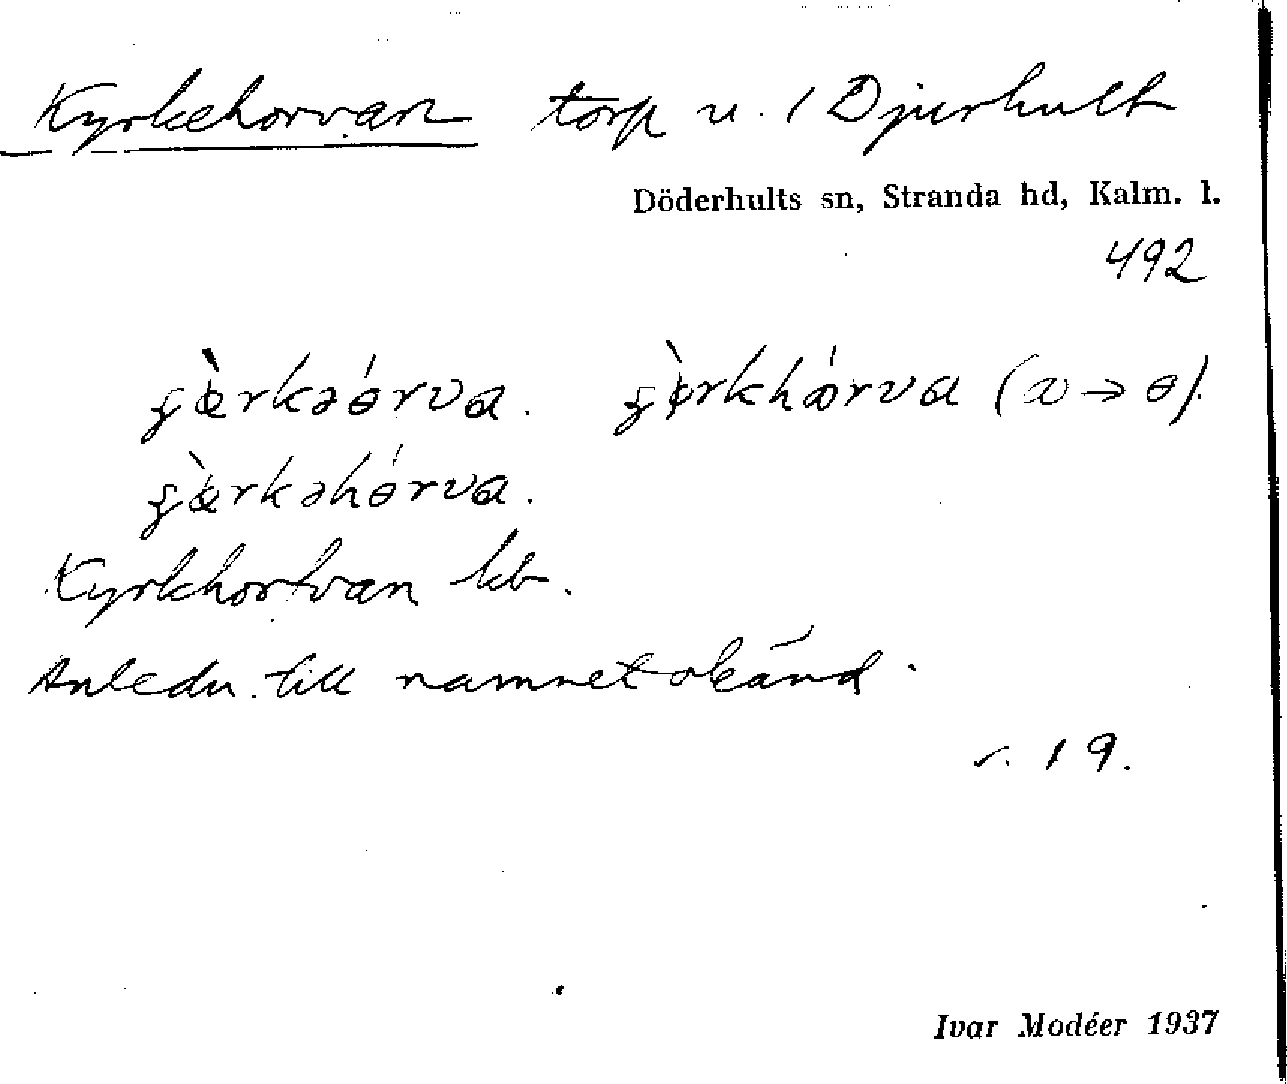 Kyrkehorvan torp u. 1 Djurhult
Döderhults sn, Stranda hd, Kalm. l.
492
Kyrkhorfvan kb.
Anledn. till namnet okänd.
19.
Ivar Modéer 1937